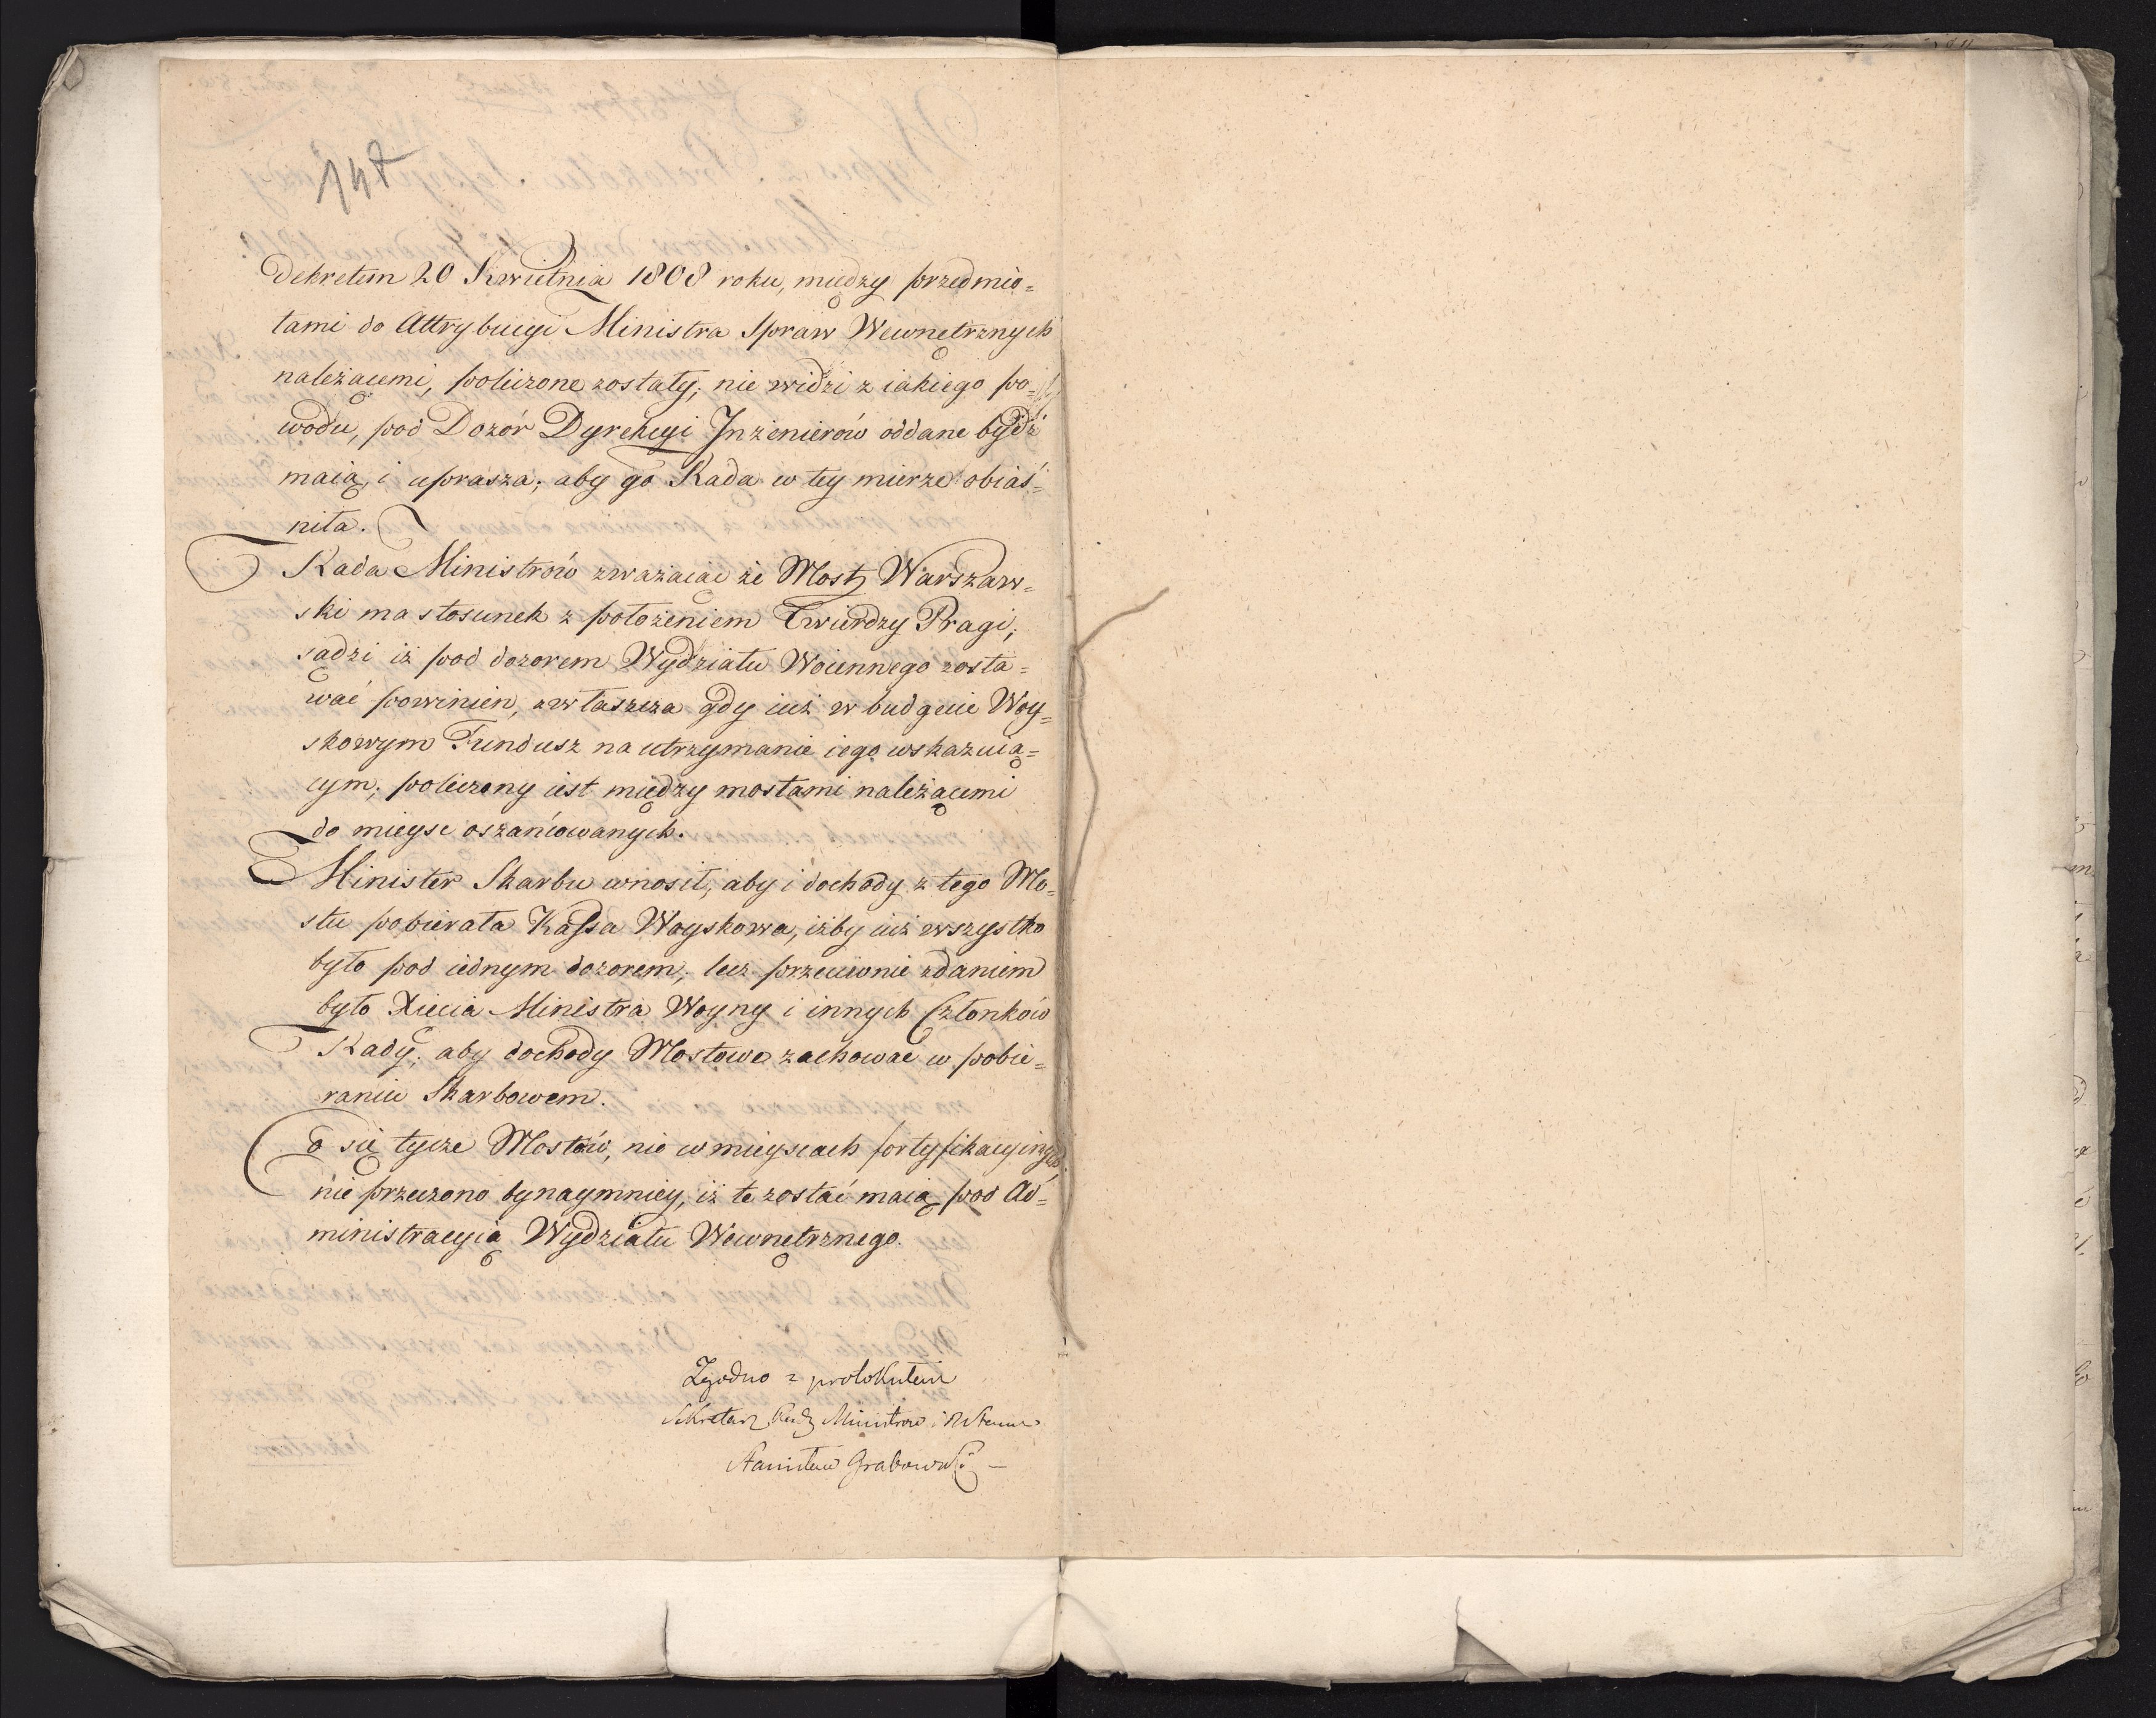 148
Dekretem 20 Kwietnia 1808 roku, między przedmio=
tami do Attrybucyi Ministra Spraw Wewnętrznych
należącemi, policzone zostały; nie widzi z iakiego po=
wodu, pod Dozór Dyrekcyi Inżenierów oddane bydź
maią, i uprasza; aby go Rada w tey mierze obiaś=
niła.
Rada Ministrów zważaiąc że Most Warszaw=
ski ma stosunek z położeniem Twierdzy Pragi;
sądzi iż pod dozorem Wydziału Woiennego zosta=
wać powinien, zwłaszcza gdy iuż w budgecie Woy=
skowym Fundusz na utrzymanie iego wskazuią=
cym; policzony iest między mostami należącemi
do mieysc oszańcowanych.
Minister Skarbu wnosił, aby i dochody z tego Mo=
stu pobierała Kassa Woyskowa, iżby iuż wszystko
było pod iednym dozorem; lecz przeciwnie zdaniem
było Xięcia Ministra Woyny i innych Członków
Rady; aby dochody Mostowe zachować w pobie=
raniu Skarbowem.
Co się tycze Mostów, nie w mieyscach fortyfikacyinych
nie przeczono bynaymniey, iż te zostać maią pod Ad=
ministracyią Wydziału Wewnętrznego.
Zgodno z protokułem
Sekretarz Rady Ministrów i Stanu
Stanisław Grabowski